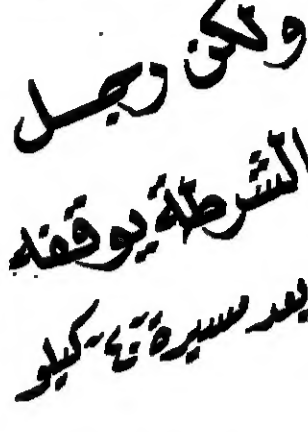 ولكن رجل
الشرطة يوقفه
بعد مسيرة ٤٠ كيلو